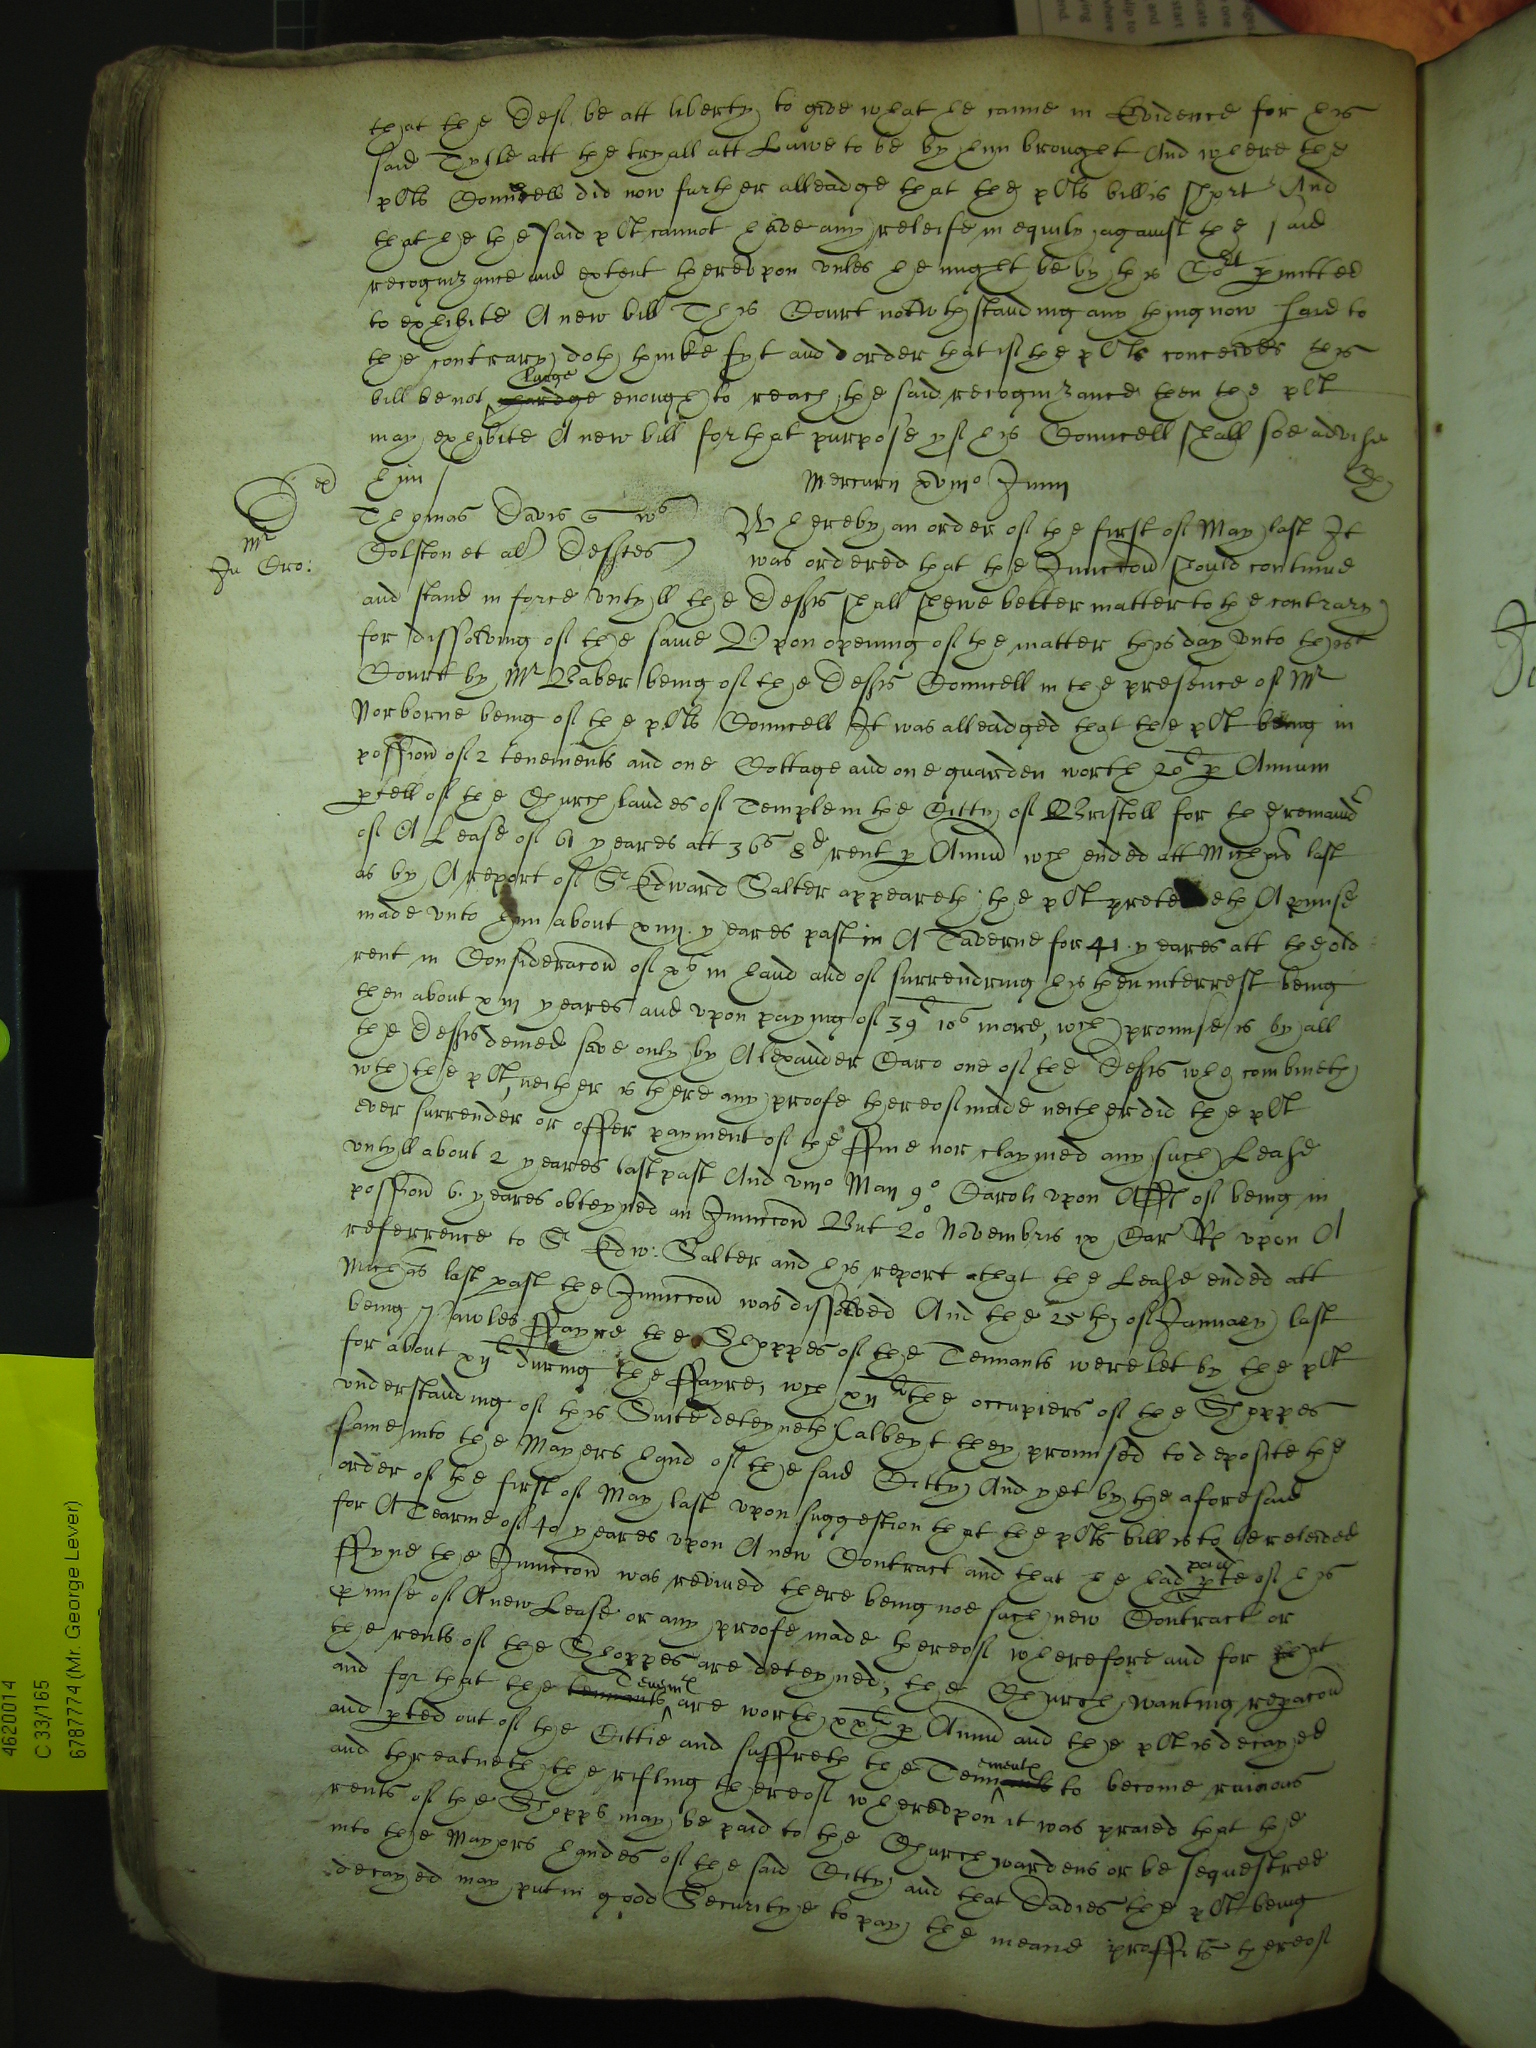 that the Deft be att liberty to give what he canne in Evidence for his
said Tytle att the tryall att Lawe to be by him brought And where the
plts Councell did now further alleadge that the plts bill is short And
that he the said plt cannot have any releife in equity against the said
recognizance and extent therevpon vnles he might be by this Cort pmitted
to exhibite A new bill This Court notwthstanding any thing now said to
the contrary doth thinke fyt and order that if the plts conceives this
bill be not large enough to reach the said recognizance then the plt
may exhibite A new bill for that purpose yf his Councell shall soe advise
him
Mercurii xviiio Junii
Thomas Davis
Colston et al Defftes
Mr
Whereby an order of the first of May last It
was ordered that the Iniuccon should continue
and stand in force vntyll the Deffts shall shewe better matter to the contrary
for dissolving of the same Vpon opening of the matter this day vnto this
Court by Mr Baber being of the Deffts Councell in the presence of Mr
Norborne being of the plts Councell It was alleadged that the plt being in
possion of 2 tenements and one Cottage and one guarden worth 20l p Annum
pcell of the Church landes of Temple in the Citty of Bristoll for the remaindr
of A Lease of 61 yeares att 36s 8d rent p Annu wch ended att Michas last
as by A report of Sr Edward Salter appeareth; the plt pretendeth A pmise
made vnto him about xiiii yeares past in A Taverne for 41 yeares att the old
rent in Consideracon of xs in hand and of surrendring his then interrest being
then about xiii yeares and vpon paying of 39l 10s more, wch promise is by all
the Deffts denied save only by Alexander Caro one of the Deffts who combineth
wth the plt, neither is there any proofe thereof made neither did the plt
ever surrender or offer payment of the ffine nor claymed any such Lease
vntyll about 2 yeares last past And viiio Maii 9o Caroli vpon Afft of being in
possion 6 yeares obteyned an Iniuccon But 20 Novembris ix Car Rs vpon A
referrence to Sr Edw: Salter and his report that the Lease ended att
Michas last past the Iniuccon was dissolved And the 25th of January last
being Pawles ffayre the Shoppes of the Tennants were let by the plt
for about xiil during the ffayre, wch xiil the occupiers of the Shoppes
vnderstanding of this Suite deteyneth (albeyt they promised to deposite the
same into the Mayers hand of the said Citty And yet by the aforesaid
order of the first of May last vpon suggestion that the plts bill is to be releived
for A Tearme of 40 yeares vpon A new Contract and that he had paid pte of his
ffyne the Iniuccon was revived there being noe such new Contract or
pmise of A new Lease or any proofe made thereof wherefore and for that
the rents of the Shoppes are deteyned, the Church wanting repacon
and for that the Tenemts are worth xxl p Annu and the plt is decayed
and pted out of the Cittie and suffreth the Tennements to become ruinous
and threatneth the rifling thereof wherevpon it was praied that the
rents of the Shopps may be paid to the Churchwardens or be sequestred
into the Mayors handes of the said Citty and that Davies the plt being
decayed may put in good Securitye to pay the meane proffits thereof
4620014
C 33/165
6787774 (Mr. George Lever)